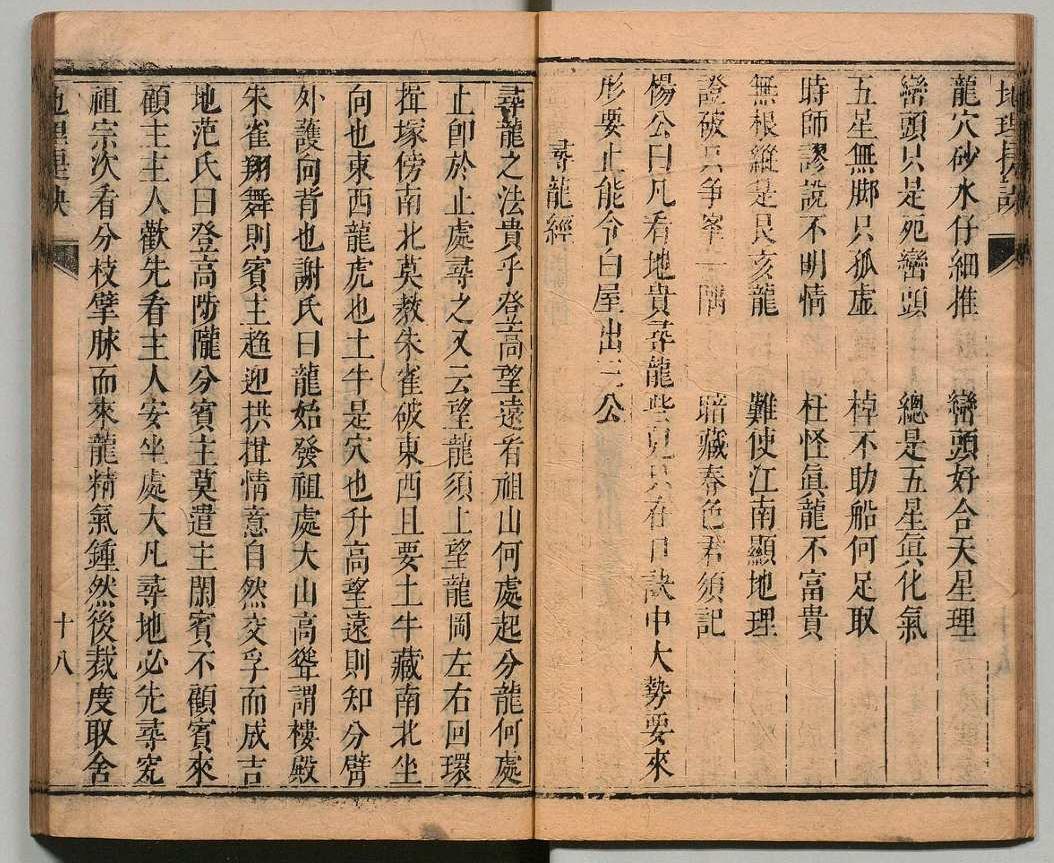 地理
龍穴砂水仔細推　巒頭好合天星理
巒頭只是死巒頭　總是五星眞化氣
五星無脚只狐虛　棹不助船何足取
時師謬說不明情　枉怪眞龍不富貴
無根縱是艮亥龍　難使江南顯地理
證破只爭峯一隅　暗藏春色君須記
楊公曰凡看地貴尋龍些見只在口訣中大勢要來
形要止能令白屋出三公
尋龍經
尋龍之法貴乎登高望遠看祖山何處起分龍何處
止卽於止處尋之又云望龍須上望龍岡左右回環
揖塚傍南北莫教朱雀破東西且要土牛藏南北坐
向也東西龍虎也土牛是穴也升高望遠則知分劈
外護向背也謝氏曰龍始發祖處大山高聳謂樓殿
朱雀翔舞則賓主趨迎拱揖情意自然交孚而成吉
地范氏曰登高陟隴分賓主莫遣主閒賓不顧賓來
顧主主人歡先看主人安坐處大凡尋地必先尋究
祖宗次看分枝擘脉而來龍精氣鍾然後裁度取舍
地理　訣
十八